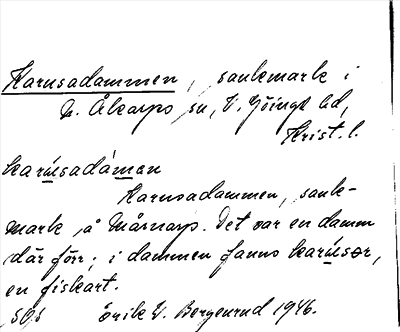 Karusadammen, sankmark i
N. Åkarps sn, V. Göinge hd,
Krist. l.
karu̲sadá̲men
Karusadammen, sank-
mark å Mårnarp. Det var en damm
där förr; i dammen fanns karu̲sər,
en fiskart.
S0s Erik W. Bergenrud 1946.